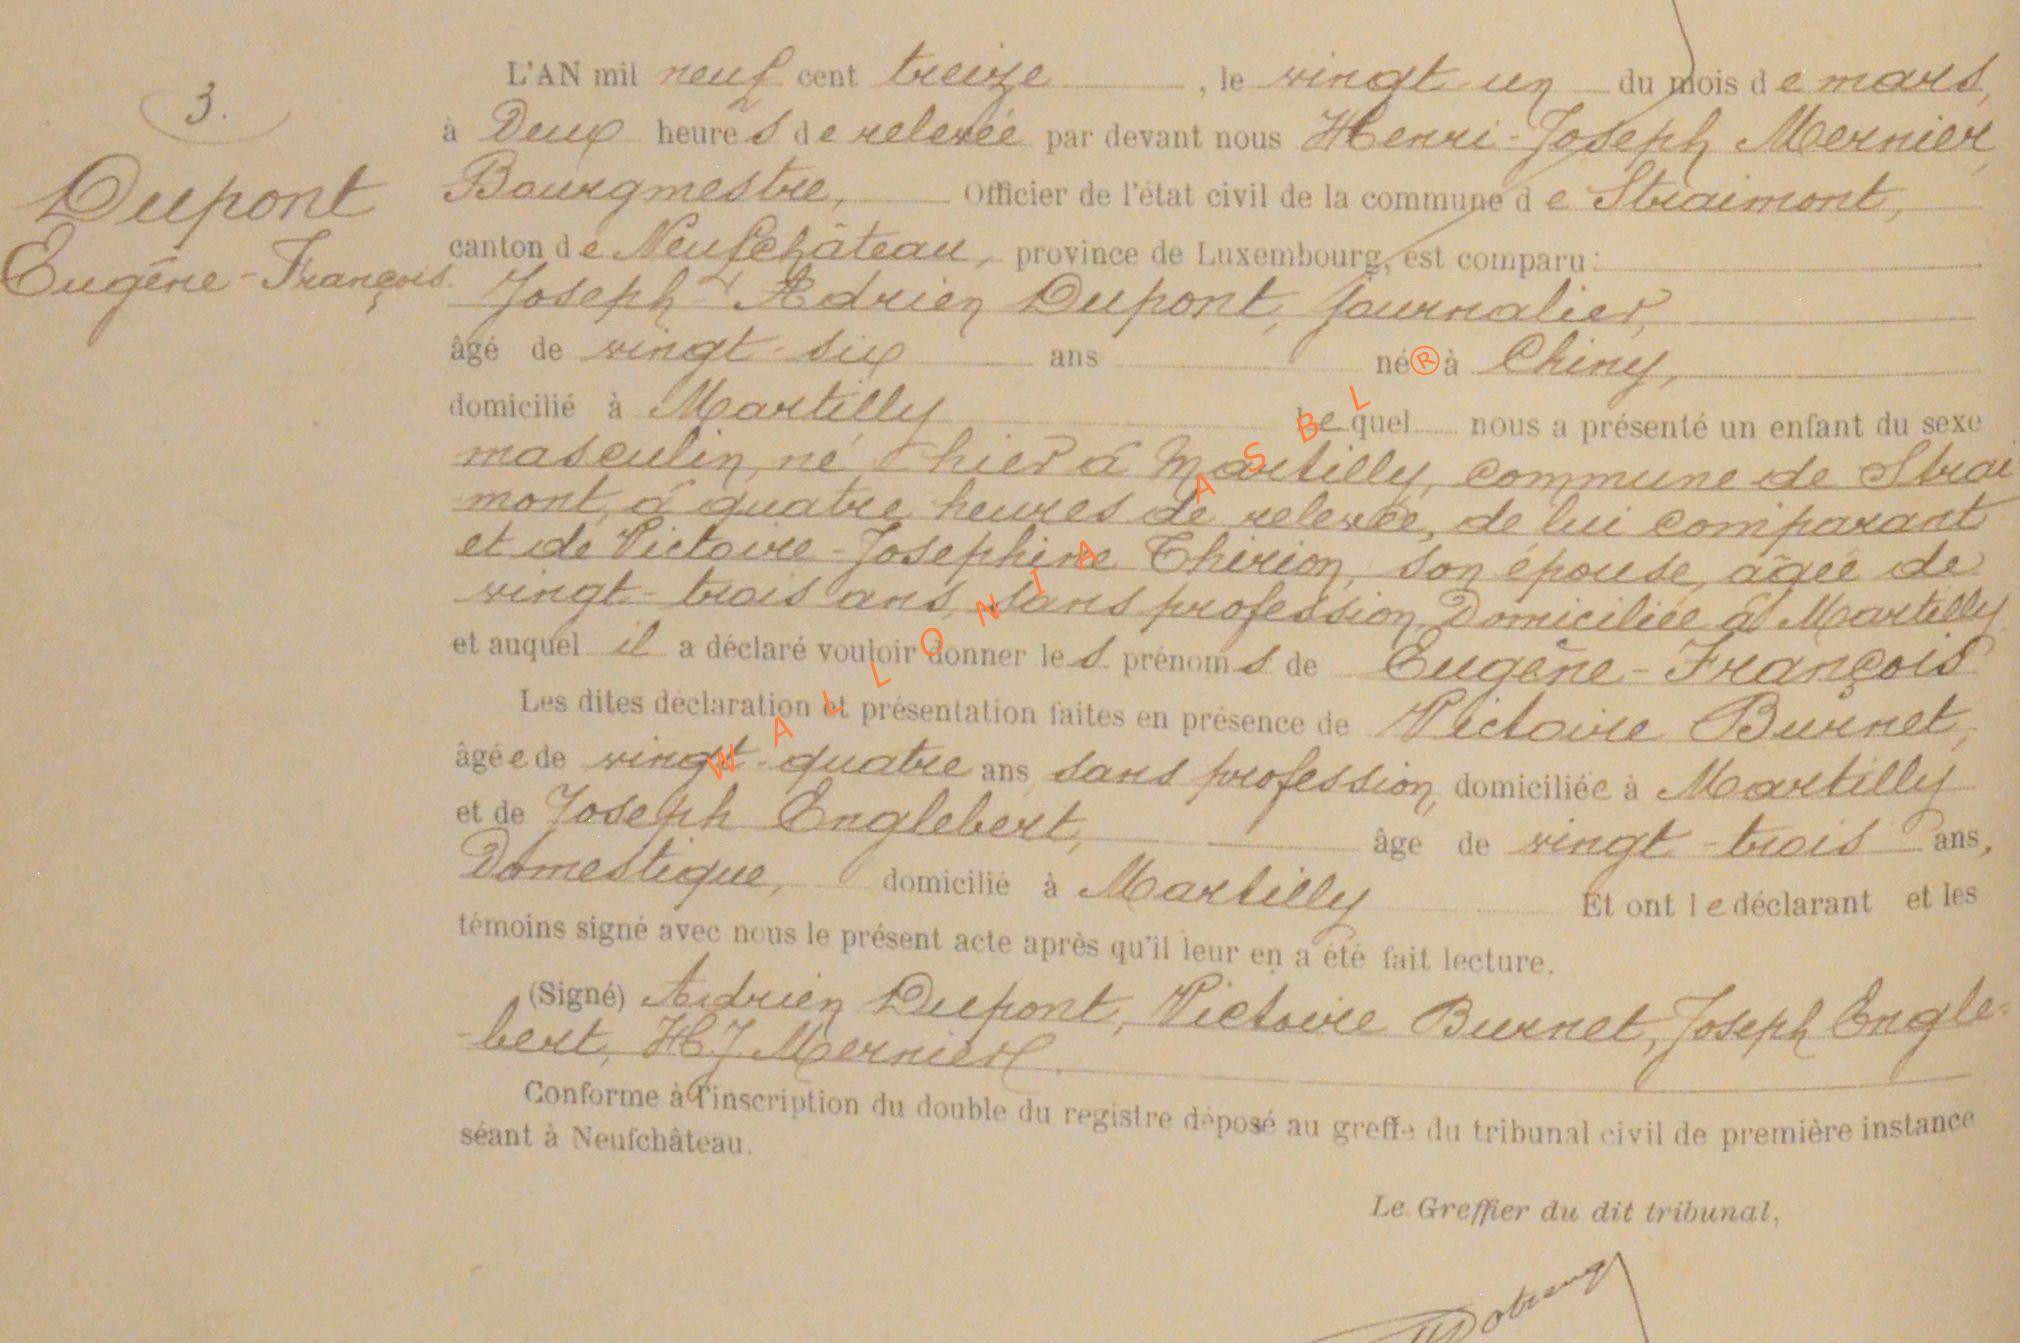 3.
Dupont
Eugène-François.
L'AN mil neuf cent treize , le vingt un du mois de mars,
à Deux heures de relevée par devant nous Henri-Joseph Mernier,
Bourgmestre, Officier de l'état civil de la commune de Straimont,
canton de Neufchâteau, province de Luxembourg, est comparu:
Joseph Adrien Dupont, journalier,
âgé de vingt-six ans né ® à Chiny,
domicilié à Martilly lequel nous a présenté un enfant du sexe
masculin, né hier à Martilly, commune de Strai
mont, à quatre heures de relevée, de lui comparant
et de Victoire-Josephine Thirion, son épouse, âgée de
vingt-trois ans, sans profession, Domiciliée à Martilly
et auquel il a déclaré vouloir donner les prénoms de Eugène-François
Les dites déclaration et présentation faites en présence de Victoire Burnet,
âgée de vingt-quatre ans sans profession, domiciliée à Martilly
et de Joseph Englebert, âge de vingt-trois ans,
Domestique, domicilié à Martilly Et ont le déclarant et les
témoins signé avec nous le présent acte après qu'il leur en a été fait lecture.
(Signé) Adrien Dupont, Victoire Burnet, Joseph Engle=
bert, H.J. Mernier.
Conforme à l'inscription du double du registre déposé au greffe du tribunal civil de première instance
séant à Neufchâteau.
Le Greffier du dit tribunal,
WALLONIA ASBL